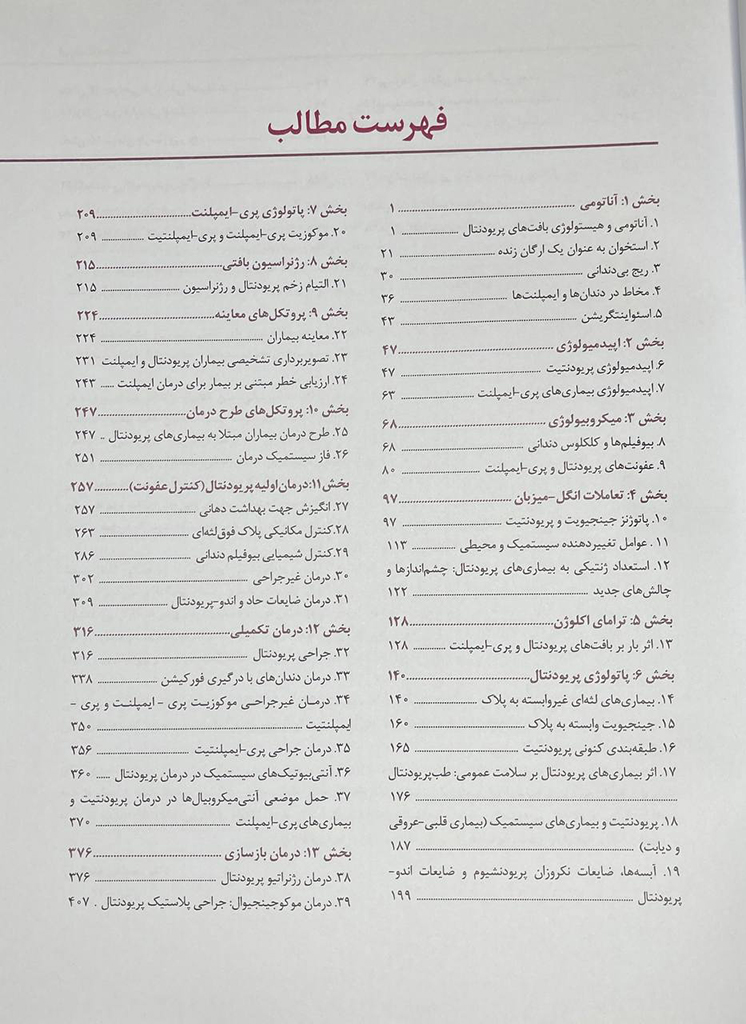 فهرست مطالب
بخش ۱: آناتومی ۱
۱. آناتومی و هیستولوژی بافت‌های پریودنتال ۱
۲. استخوان به عنوان یک ارگان زنده ۲۱
۳. ریج بی‌دندانی ۳۰
۴. مخاط در دندان‌ها و ایمپلنت‌ها ۳۶
۵. اسئواینتگریشن ۴۳
بخش ۲: اپیدمیولوژی ۴۷
۶. اپیدمیولوژی پریودنتیت ۴۷
۷. اپیدمیولوژی بیماری‌های پری-ایمپلنت ۶۳
بخش ۳: میکروبیولوژی ۶۸
۸. بیوفیلم‌ها و کلکلوس دندانی ۶۸
۹. عفونت‌های پریودنتال و پری-ایمپلنت ۸۰
بخش ۴: تعاملات انگل-میزبان ۹۷
۱۰. پاتوژنز جینجیویت و پریودنتیت ۹۷
۱۱. عوامل تغییردهنده سیستمیک و محیطی ۱۱۳
۱۲. استعداد ژنتیکی به بیماری‌های پریودنتال: چشم‌اندازها و
چالش‌های جدید ۱۲۲
بخش ۵: ترامای اکلوژن ۱۲۸
۱۳. اثر بار بر بافت‌های پریودنتال و پری-ایمپلنت ۱۲۸
بخش ۶: پاتولوژی پریودنتال ۱۴۰
۱۴. بیماری‌های لثه‌ای غیروابسته به پلاک ۱۴۰
۱۵. جینجیویت وابسته به پلاک ۱۶۰
۱۶. طبقه‌بندی کنونی پریودنتیت ۱۶۵
۱۷. اثر بیماری‌های پریودنتال بر سلامت عمومی: طب‌پریودنتال
۱۷۶
۱۸. پریودنتیت و بیماری‌های سیستمیک (بیماری قلبی-عروقی
و دیابت) ۱۸۷
۱۹. آبسه‌ها، ضایعات نکروزان پریودنشیوم و ضایعات اندو-
پریودنتال ۱۹۹
بخش ۷: پاتولوژی پری-ایمپلنت ۲۰۹
۲۰. موکوزیت پری-ایمپلنت و پری-ایمپلنتیت ۲۰۹
بخش ۸: رژنراسیون بافتی ۲۱۵
۲۱. التیام زخم پریودنتال و رژنراسیون ۲۱۵
بخش ۹: پروتکل‌های معاینه ۲۲۴
۲۲. معاینه بیماران ۲۲۴
۲۳. تصویربرداری تشخیصی بیماران پریودنتال و ایمپلنت ۲۳۱
۲۴. ارزیابی خطر مبتنی بر بیمار برای درمان ایمپلنت ۲۴۳
بخش ۱۰: پروتکل‌های طرح درمان ۲۴۷
۲۵. طرح درمان بیماران مبتلا به بیماری‌های پریودنتال ۲۴۷
۲۶. فاز سیستمیک درمان ۲۵۱
بخش۱۱:درمان‌اولیه‌پریودنتال(کنترل‌عفونت) ۲۵۷
۲۷. انگیزش جهت بهداشت دهانی ۲۵۷
۲۸.کنترل مکانیکی پلاک فوق‌لثه‌ای ۲۶۳
۲۹.کنترل شیمیایی بیوفیلم دندانی ۲۸۶
۳۰. درمان غیرجراحی ۳۰۲
۳۱. درمان ضایعات حاد و اندو-پریودنتال ۳۰۹
بخش ۱۲: درمان تکمیلی ۳۱۶
۳۲. جراحی پریودنتال ۳۱۶
۳۳. درمان دندان‌های با درگیری فورکیشن ۳۳۸
۳۴. درمـان غیرجراحـی موکوزیـت پری - ایمپلنـت و پری -
ایمپلنتیت ۳۵۰
۳۵. درمان جراحی پری-ایمپلنتیت ۳۵۶
۳۶. آنتی‌بیوتیک‌های سیستمیک در درمان پریودنتال ۳۶۰
۳۷. حمل موضعی آنتی‌میکروبیال‌ها در درمان پریودنتیت و
بیماری‌های پری-ایمپلنت ۳۷۰
بخش ۱۳: درمان بازسازی ۳۷۶
۳۸. درمان رژنراتیو پریودنتال ۳۷۶
۳۹. درمان موکوجینجیوال: جراحی پلاستیک پریودنتال ۴۰۷